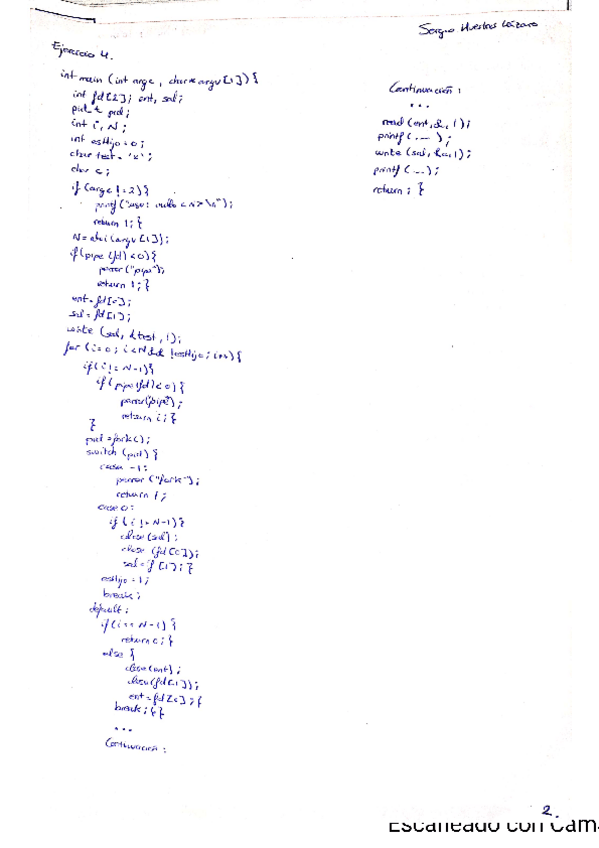 Sergio Huestas Lázaro
Ejercicio 4.
int main (int argc, char* argv[1]) {
int fd[2]; ent, sal;
pid_t pid;
int i, N;
int esHijo = 0;
char test = 'x';
char c;
if (argc != 2) {
printf ("uso: anillo <N> \n");
return 1; }
N = atoi (argv[1]);
if (pipe (fd) < 0) {
perror ("pipe");
return 1; }
ent = fd[0];
sal = fd[1];
write (sal, &test, 1);
for (i = 0; i < N && !esHijo; i++) {
if (i != N-1) {
if (pipe (fd) < 0) {
perror ("pipe");
return i; }
}
pid = fork();
switch (pid) {
case -1:
perror ("fork");
return 1;
case 0:
if (i != N-1) {
close (sal);
close (fd[0]);
sal = f [1]; }
esHijo = 1;
break;
default:
if (i == N-1) {
return 0; }
else {
close (ent);
close (fd[1]);
ent = fd[0]; }
break; } }
...
Continuación:
Continuación:
...
read (ent, &c, 1);
printf (...);
write (sal, &c, 1);
printf (...);
return; }
2.
Escaneado con Cam